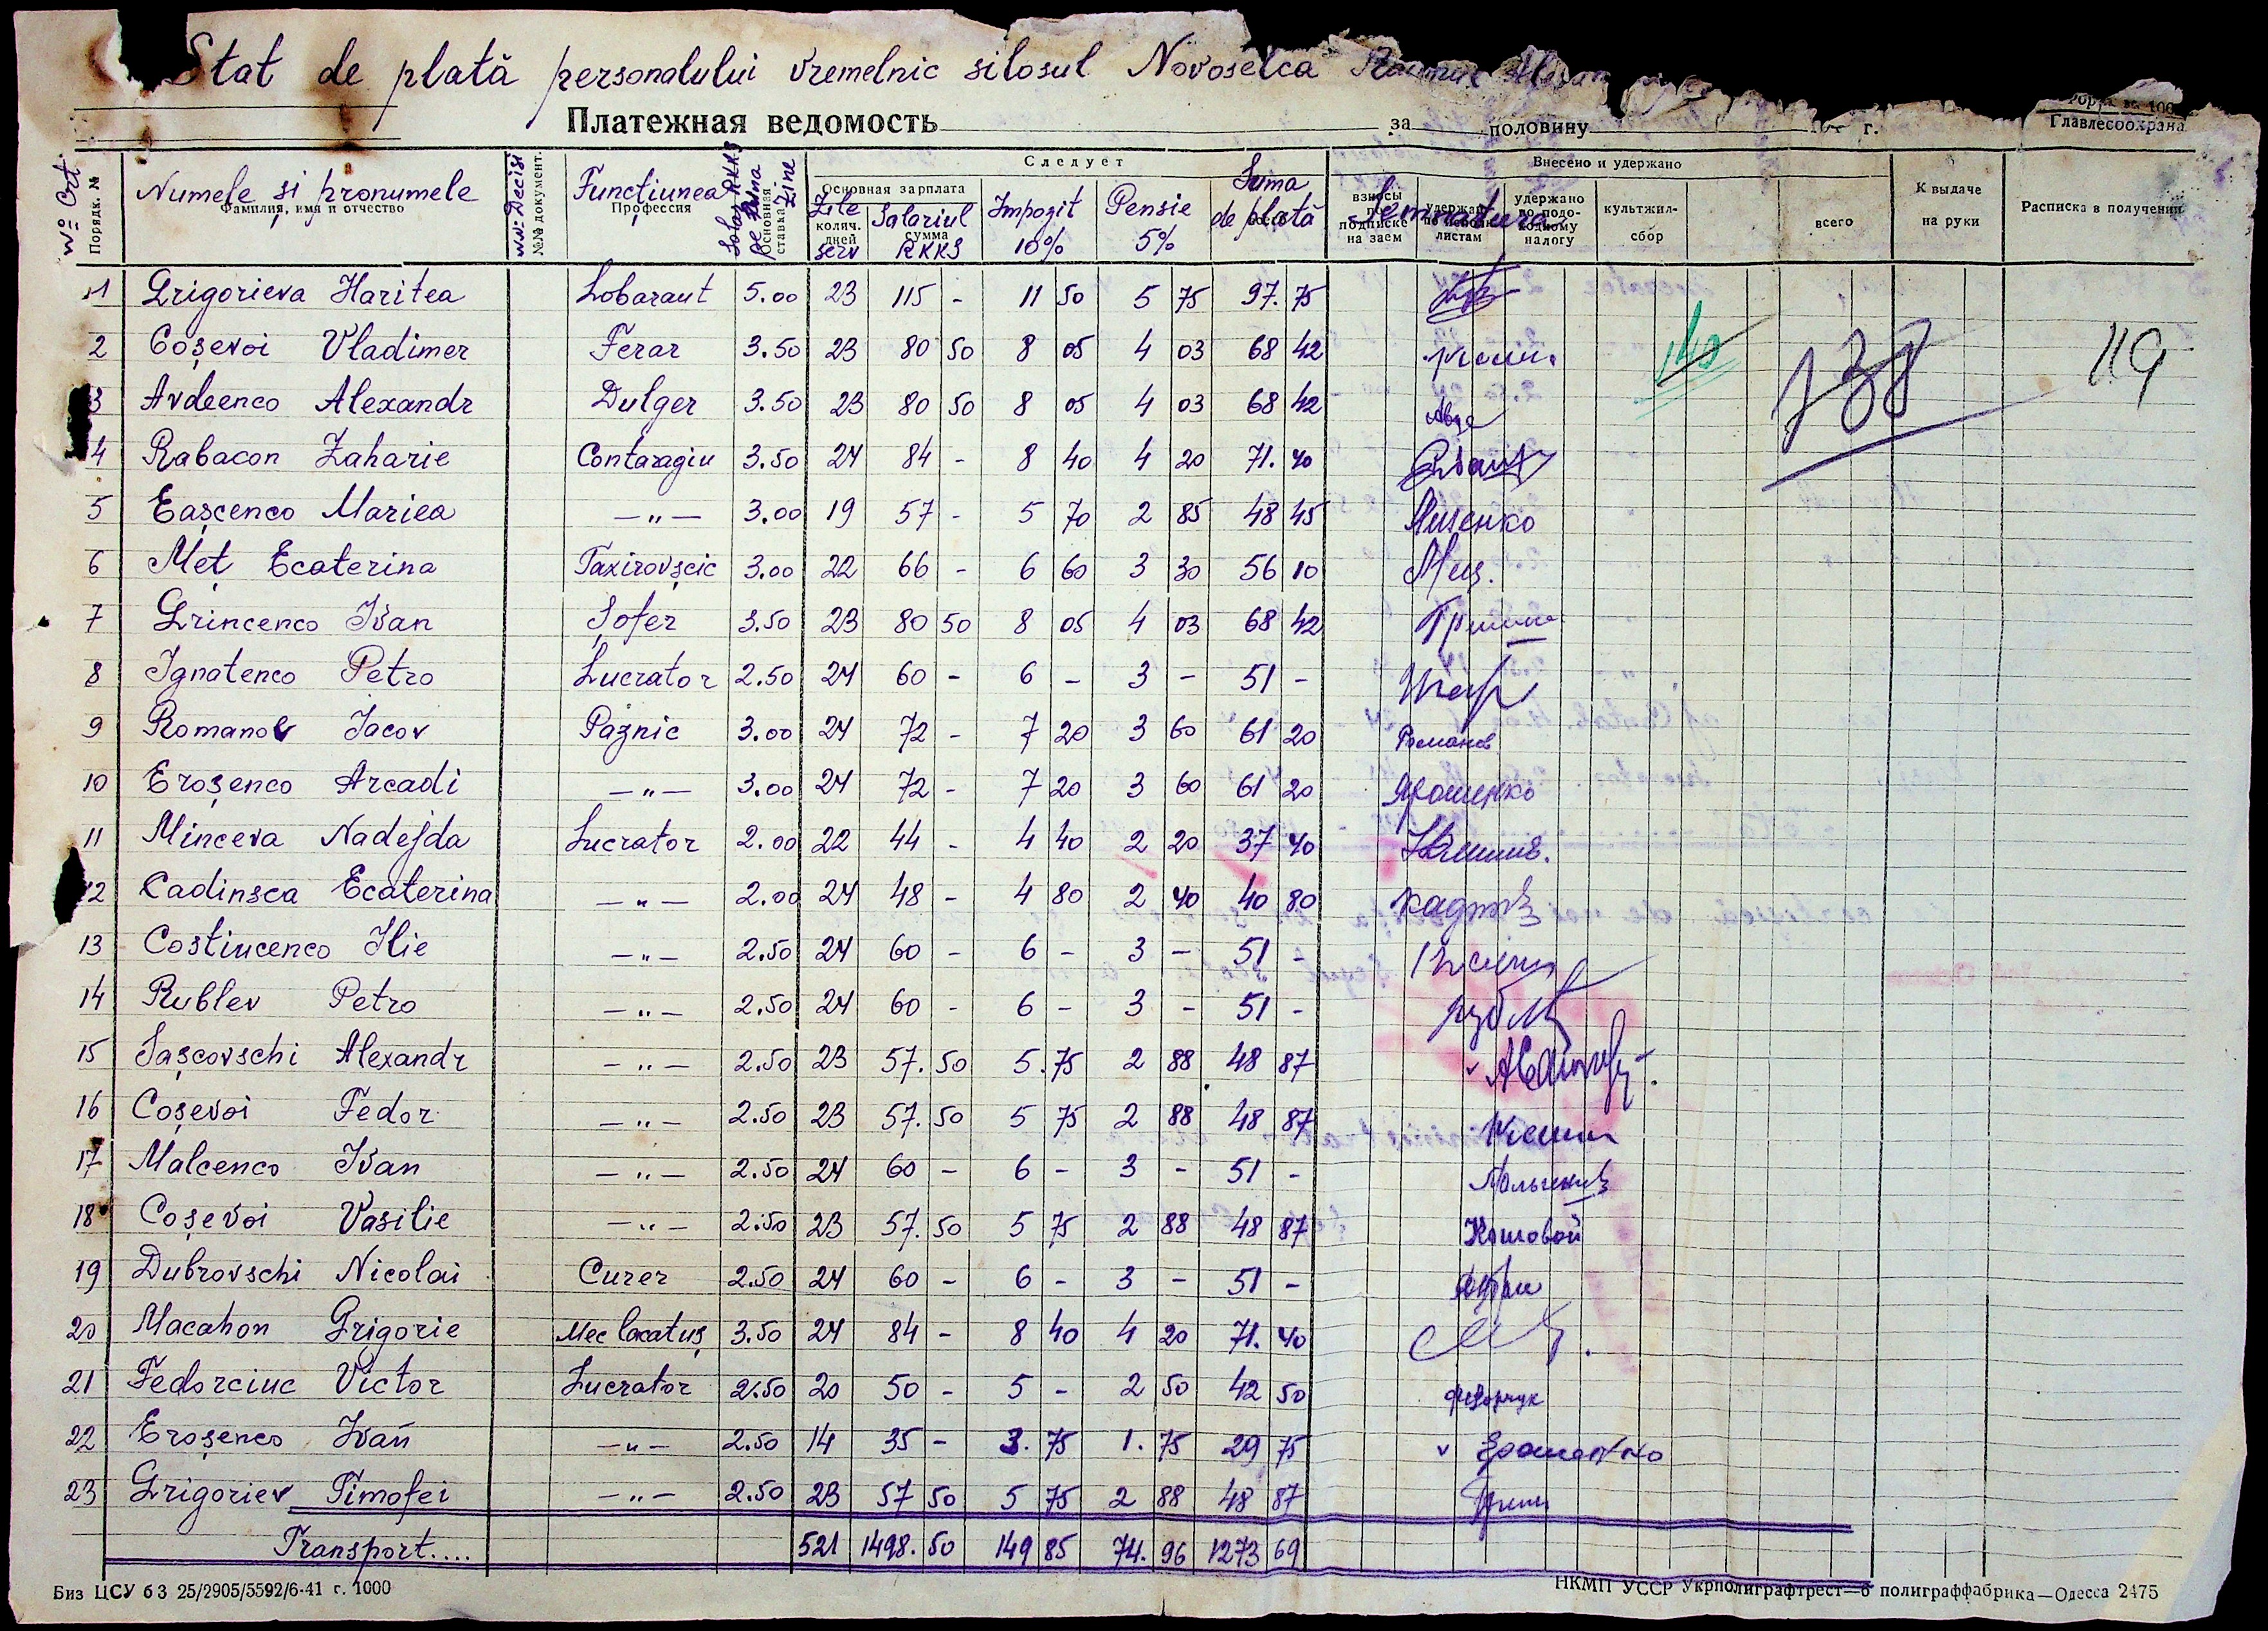 Stat de plată personalului vremelnic silosul Novoselca
Платежная ведомость за половину г.
Главлесоохрана
No Crt. Порядк. № Numele și pronumele Фамилия, имя и отчество №№ документ. Funcțiunea Профессия Основная ставка Следует Внесено и удержано К выдаче на руки Расписка в получении
Основная зарплата Zile serv колич. дней Salariul сумма RKKS Impozit 10% Pensie 5% Suma de plată Semnatura взносы по подписке на заем листам удержано по подоходному налогу культжил-сбор всего
1 Grigorieva Haritea Loborant 5.00 23 115 - 11 50 5 75 97. 75
2 Coșevoi Vladimer Ferar 3.50 23 80 50 8 05 4 03 68 42 140 138 119
3 Avdeenco Alexandr Dulger 3.50 23 80 50 8 05 4 03 68 42
4 Rabacon Zaharie Contaragiu 3.50 24 84 - 8 40 4 20 71. 40
5 Eașcenco Mariea -"- 3.00 19 57 - 5 70 2 85 48 45
6 Meț Ecaterina Taxirovșcic 3.00 22 66 - 6 60 3 30 56 10 Мец.
7 Grincenco Ivan Șofer 3.50 23 80 50 8 05 4 03 68 42
8 Ignatenco Petro Lucrator 2.50 24 60 - 6 - 3 - 51 -
9 Romanov Iacov Paznic 3.00 24 72 - 7 20 3 60 61 20 Романов
10 Eroșenco Arcadi -"- 3.00 24 72 - 7 20 3 60 61 20 Ярошенко
11 Minceva Nadejda Lucrator 2.00 22 44 - 4 40 2 20 37 40
12 Cadinsca Ecaterina -"- 2.00 24 48 - 4 80 2 40 40 80
13 Costiucenco Ilie -"- 2.50 24 60 - 6 - 3 - 51 -
14 Rublev Petro -"- 2.50 24 60 - 6 - 3 - 51 -
15 Sașcovschi Alexandr -"- 2.50 23 57. 50 5. 75 2 88 48 87
16 Coșevoi Fedor -"- 2.50 23 57. 50 5 75 2 88 48 87
17 Malcenco Ivan -"- 2.50 24 60 - 6 - 3 - 51 -
18 Coșevoi Vasilie -"- 2.50 23 57. 50 5 75 2 88 48 87 Кошовой
19 Dubrovschi Nicolai Curer 2.50 24 60 - 6 - 3 - 51 -
20 Macahon Grigorie Mec lacatuș 3.50 24 84 - 8 40 4 20 71. 40
21 Fedorciuc Victor Lucrator 2.50 20 50 - 5 - 2 50 42 50 Федорчук
22 Eroșenco Ivan -"- 2.50 14 35 - 3. 75 1. 75 29 75
23 Grigoriev Timofei -"- 2.50 23 57 50 5 75 2 88 48 87
Transport.... 521 1498. 50 149 85 74. 96 1273 69
Биз ЦСУ 6 3 25/2905/5592/6-41 г. 1000 НКМП УССР Укрполиграфтрест—6 полиграффабрика—Одесса 2475